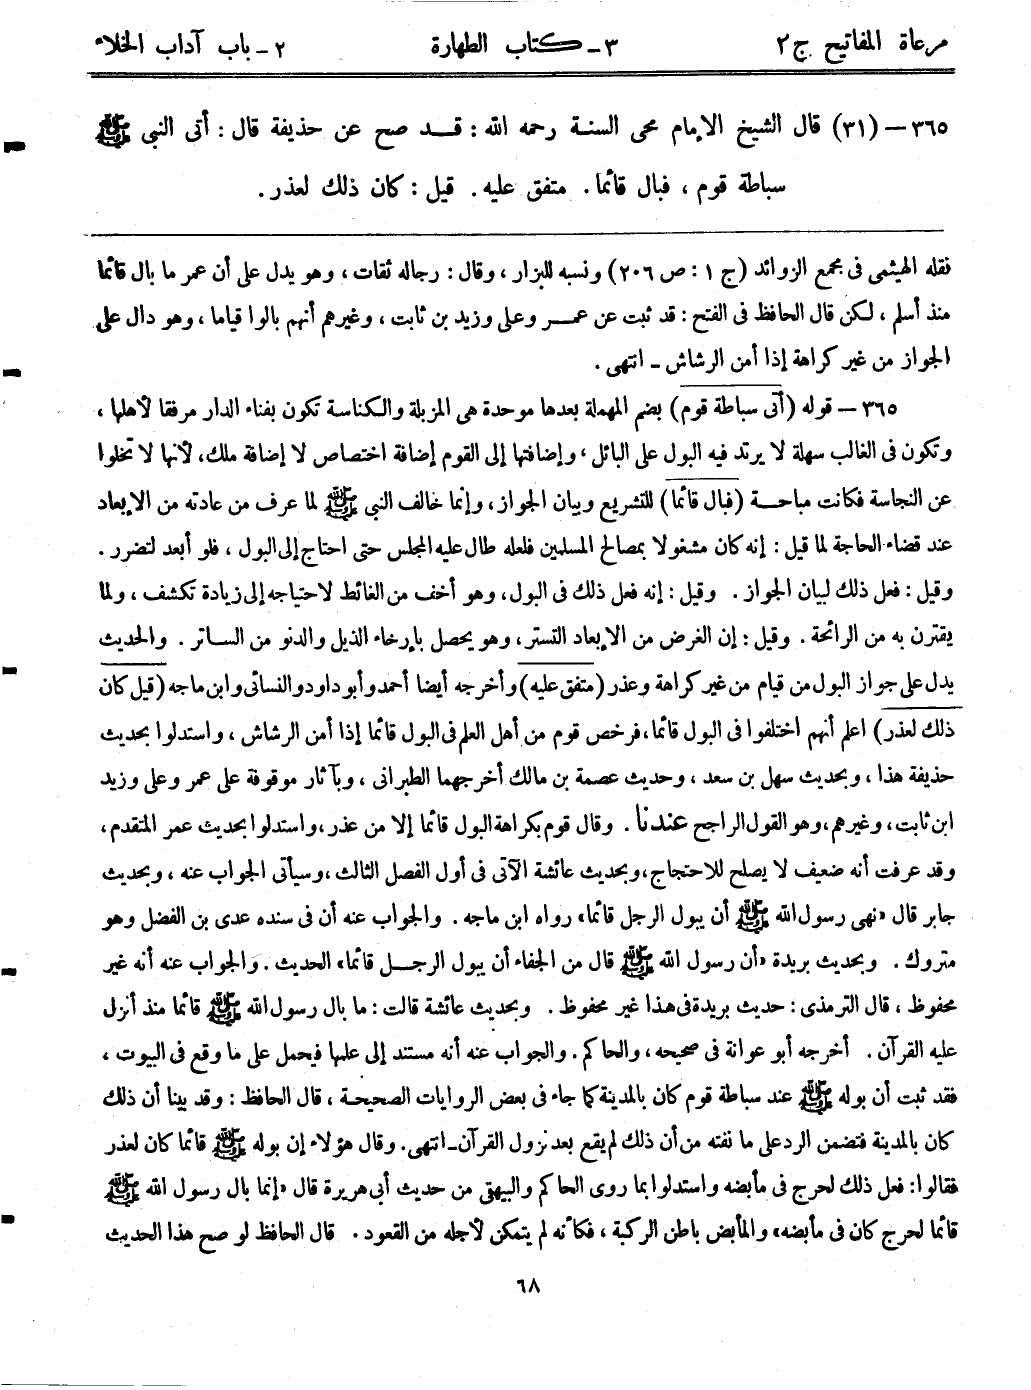 مرعاة المفاتيح ج ٢ ٣ - كتاب الطهارة ٢ - باب آداب الخلاء
٣٦٥ - (٣١) قال الشيخ الإمام محي السنة رحمه الله : قد صح عن حذيفة قال : أتى النبي ﷺ
سباطة قوم ، فبال قائما . متفق عليه . قيل : كان ذلك لعذر .
نقله الهيثمى فى مجمع الزوائد (ج ١ : ص ٢٠٦) ونسبه للبزار ، وقال : رجاله ثقات ، وهو يدل على أن عمر ما بال قائما
منذ أسلم ، لكن قال الحافظ فى الفتح : قد ثبت عن عمر وعلى وزيد بن ثابت ، وغيرهم أنهم بالوا قياما ، وهو دال على
الجواز من غير كراهة إذا أمن الرشاش - انتهى .
٣٦٥ - قوله (أتى سباطة قوم) بضم المهملة بعدها موحدة هى المزبلة والكناسة تكون بفناء الدار مرفقا لأهلها ،
وتكون فى الغالب سهلة لا يرتد فيه البول على البائل ، وإضافتها إلى القوم إضافة اختصاص لا إضافة ملك، لأنها لا تخلوا
عن النجاسة فكانت مباحة (فبال قائما) للتشريع وبيان الجواز ، وإنما خالف النبي ﷺ لما عرف من عادته من الإبعاد
عند قضاء الحاجة لما قيل : إنه كان مشغولا بمصالح المسلمين فلعله طال عليه المجلس حتى احتاج إلى البول ، فلو أبعد لتضرر .
وقيل : فعل ذلك لبيان الجواز . وقيل : إنه فعل ذلك فى البول، وهو أخف من الغائط لاحتياجه إلى زيادة تكشف ، ولما
يقترن به من الرائحة . وقيل : إن الغرض من الإبعاد التستر ، وهو يحصل بإرخاء الذيل والدنو من الساتر . والحديث
يدل على جواز البول من قيام من غير كراهة وعذر (متفق عليه) وأخرجه أيضا أحمد وأبو داود والنسائى وابن ماجه (قيل كان
ذلك لعذر) اعلم أنهم اختلفوا فى البول قائما، فرخص قوم من أهل العلم فى البول قائما إذا أمن الرشاش ، واستدلوا بحديث
حذيفة هذا ، وبحديث سهل بن سعد ، وحديث عصمة بن مالك أخرجهما الطبرانى ، وبآثار موقوفة على عمر وعلى وزيد
ابن ثابت، وغيرهم، وهو القول الراجح عندنا . وقال قوم بكراهة البول قائما إلا من عذر ، واستدلوا بحديث عمر المتقدم،
وقد عرفت أنه ضعيف لا يصلح للاحتجاج، وبحديث عائشة الآتى فى أول الفصل الثالث ، وسيأتى الجواب عنه ، وبحديث
جابر قال «نهى رسول الله ﷺ أن يبول الرجل قائما» رواه ابن ماجه . والجواب عنه أن فى سنده عدى بن الفضل وهو
متروك . وبحديث بريدة «أن رسول الله ﷺ قال من الجفاء أن يبول الرجل قائما» الحديث . والجواب عنه أنه غير
محفوظ ، قال الترمذى : حديث بريدة فى هذا غير محفوظ . وبحديث عائشة قالت : ما بال رسول الله ﷺ قائما منذ أنزل
عليه القرآن . أخرجه أبو عوانة فى صحيحه ، والحاكم . والجواب عنه أنه مستند إلى علمها فيحمل على ما وقع فى البيوت ،
فقد ثبت أن بوله ﷺ عند سباطة قوم كان بالمدينة كما جاء فى بعض الروايات الصحيحة ، قال الحافظ : وقد بينا أن ذلك
كان بالمدينة فتضمن الرد على ما نفته من أن ذلك لم يقع بعد نزول القرآن - انتهى. وقال هؤلاء إن بوله ﷺ قائما كان لعذر
فقالوا: فعل ذلك لحرج فى مأبضه واستدلوا بما روى الحاكم والبيهقى من حديث أبى هريرة قال «إنما بال رسول الله ﷺ
قائما لحرج كان فى مأبضه» والمأبض باطن الركبة ، فكأنه لم يتمكن لأجله من القعود . قال الحافظ لو صح هذا الحديث
٦٨